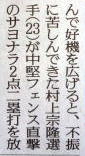 んで好機を広げると、不振
に苦しんできた村上宗隆選
手(23)が中堅フェンス直撃
のサヨナラ2点二塁打を放